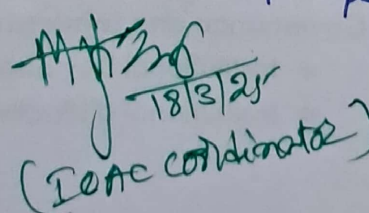 18/3/25
(IQAC coordinator)